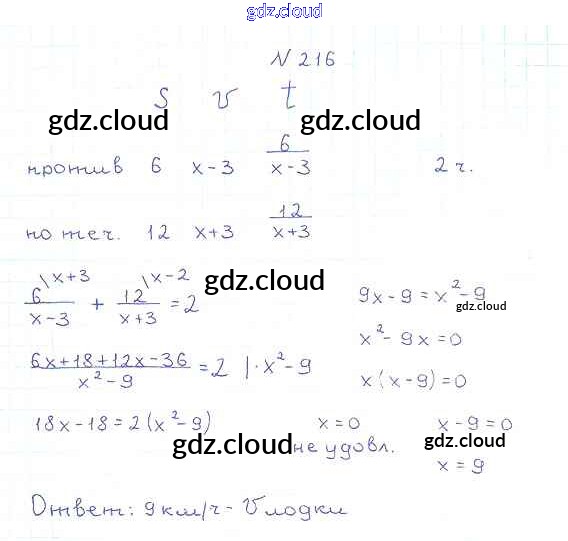 gdz.cloud
N 216
S v t
gdz.cloud gdz.cloud
против 6 x-3 6/(x-3) 2 ч.
по теч. 12 x+3 12/(x+3)
\x+3 \x-2
6/(x-3) + 12/(x+3) = 2
gdz.cloud
9x-9 = x²-9
gdz.cloud
(6x+18+12x-36)/(x²-9) = 2 |·x²-9
x²-9x=0
x(x-9)=0
18x-18=2(x²-9)
x=0 x-9=0
gdz.cloud не удовл. gdz.cloud
x=9
Ответ: 9 км/ч - V лодки
gdz.cloud